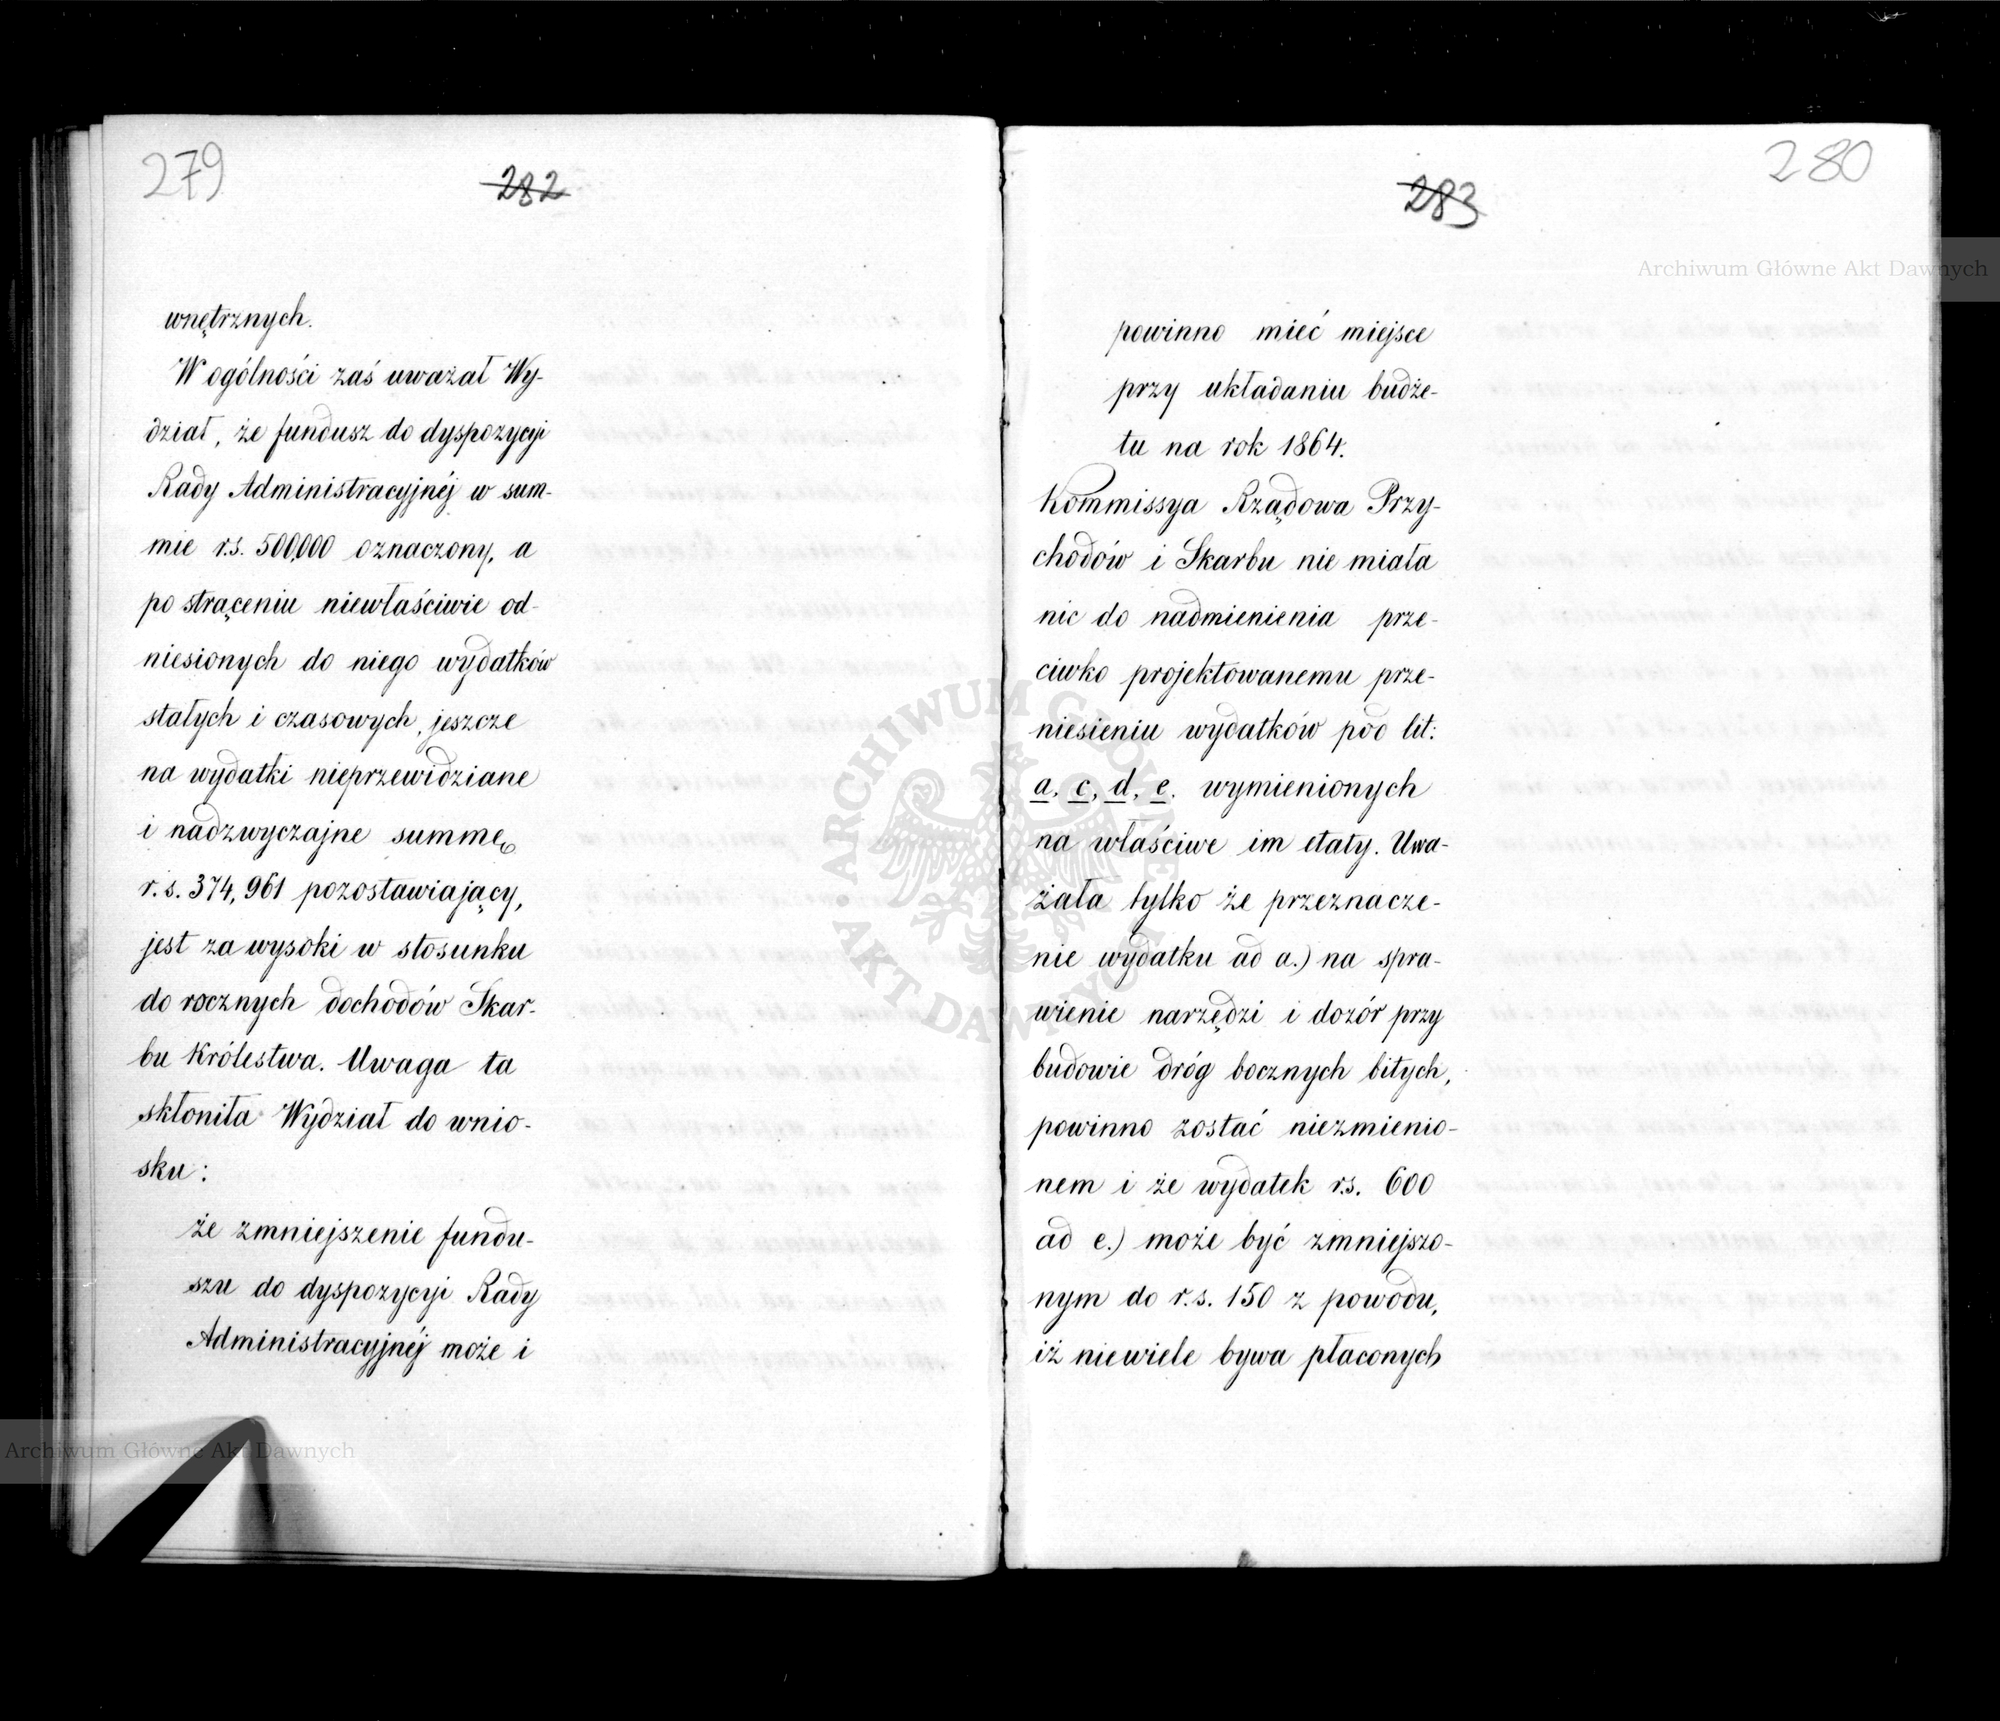 279
282
wnętrznych.
W ogólności zaś uważał Wy-
dział, że fundusz do dyspozycyi
Rady Administracyjnéj w sum-
mie r.s. 500,000 oznaczony, a
po strąceniu niewłaściwie od-
niesionych do niego wydatków
stałych i czasowych, jeszcze
na wydatki nieprzewidziane
i nadzwyczajne summę
r.s. 374,961 pozostawiający,
jest za wysoki w stosunku
do rocznych dochodów Skar-
bu Królestwa. Uwaga ta
skłoniła Wydział do wnio-
sku:
że zmniejszenie fundu-
szu do dyspozycyi Rady
Administracyjnéj może i
283
280
powinno mieć miejsce
przy układaniu budże-
tu na rok 1864.
Kommissya Rządowa Przy-
chodów i Skarbu nie miała
nic do nadmienienia prze-
ciwko projektowanemu prze-
niesieniu wydatków pod lit:
a, c, d, e. wymienionych
na właściwe im etaty. Uwa-
żała tylko że przeznacze-
nie wydatku ad a.) na spra-
wienie narzędzi i dozór przy
budowie dróg bocznych bitych,
powinno zostać niezmienio-
nem i że wydatek r.s. 600
ad e.) może być zmniejszo-
nym do r.s. 150 z powodu,
iż niewiele bywa płaconych
Archiwum Główne Akt Dawnych
Archiwum Główne Akt Dawnych
ARCHIWUM GŁÓWNE AKT DAWNYCH